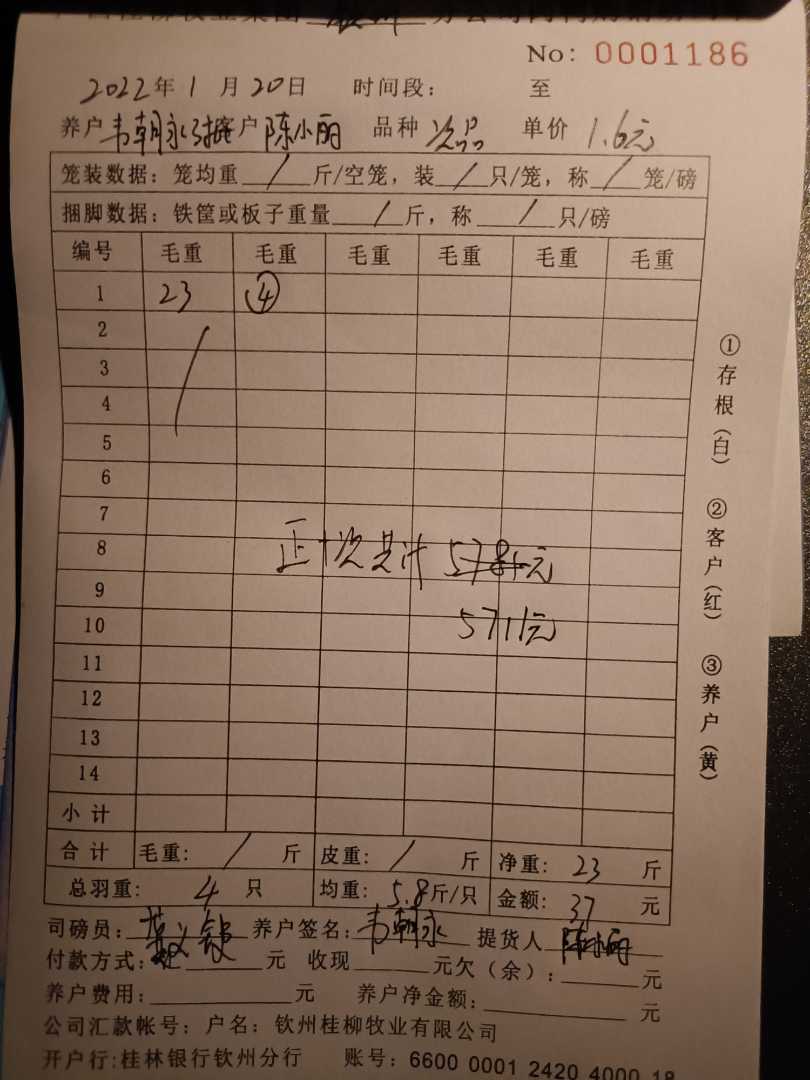 No: 0001186
2022年1月20日 时间段: 至
养户 韦朝永 客户 陈小丽 品种 次品 单价 1.6元
笼装数据: 笼均重 / 斤/空笼, 装 / 只/笼, 称 / 笼/磅
捆脚数据: 铁筐或板子重量 / 斤, 称 / 只/磅
编号 毛重 毛重 毛重 毛重 毛重 毛重
1 23 ④
2
3
4
5
6
7
8
正+次共计 元
9
10
5711元
11
12
13
14
小计
合计 毛重: / 斤 皮重: / 斤 净重: 23 斤
总羽重: 4 只 均重: 5.8斤/只 金额: 37 元
司磅员: 养户签名: 韦朝永 提货人 陈小丽
付款方式: 元 收现 元欠(余): 元
养户费用: 元 养户净金额: 元
公司汇款帐号: 户名: 钦州桂柳牧业有限公司
开户行:桂林银行钦州分行 账号: 6600 0001 2420 4000 18
①存根(白) ②客户(红) ③养户(黄)